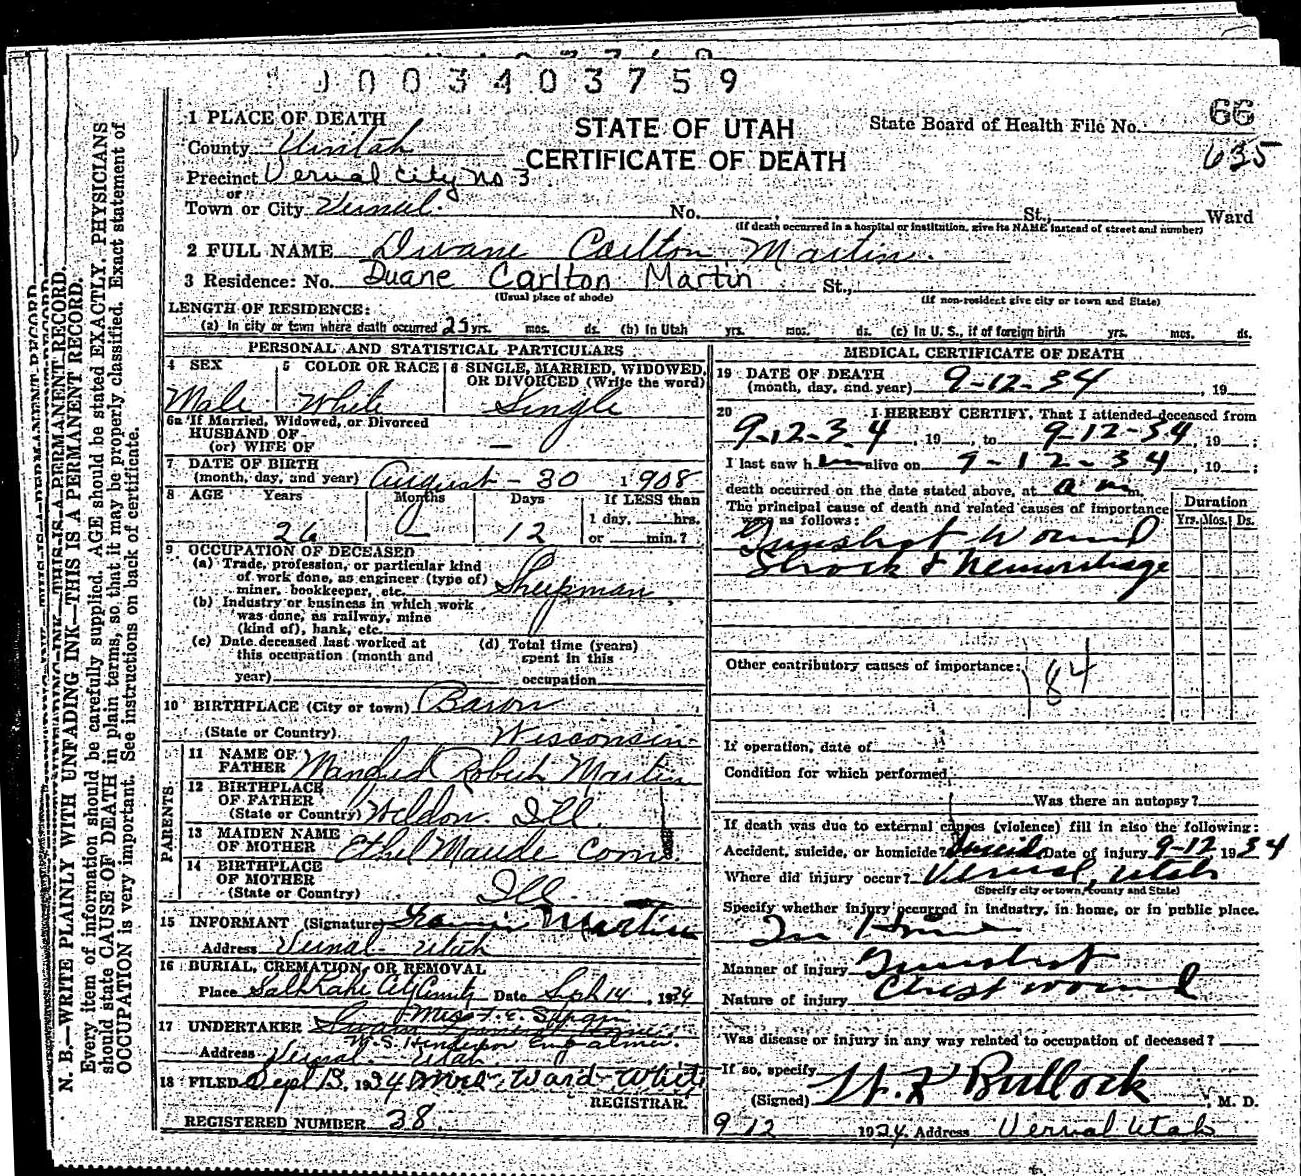 0003403759
66
635
1 PLACE OF DEATH
STATE OF UTAH
CERTIFICATE OF DEATH
State Board of Health File No.
County Uintah
Precinct Vernal City No 3
or
Town or City Vernal. No. , St., Ward
(If death occurred in a hospital or institution, give its NAME instead of street and number)
2 FULL NAME Dwane Carlton Martin.
3 Residence: No. Duane Carlton Martin St.,
(Usual place of abode) (If non-resident give city or town and State)
LENGTH OF RESIDENCE:
(a) In city or town where death occurred 25 yrs. mos. ds. (b) In Utah yrs. mos. ds. (c) In U. S., if of foreign birth yrs. mos. ds.
PERSONAL AND STATISTICAL PARTICULARS
4 SEX 5 COLOR OR RACE 6 SINGLE, MARRIED, WIDOWED, OR DIVORCED (Write the word)
Male White Single
6a If Married, Widowed, or Divorced
HUSBAND OF
(or) WIFE OF —
7 DATE OF BIRTH
(month, day, and year) August - 30 1908
8 AGE Years Months Days If LESS than
1 day, hrs.
26 — 12 or min.?
9 OCCUPATION OF DECEASED
(a) Trade, profession, or particular kind
of work done, as engineer (type of)
miner, bookkeeper, etc. Sheepman
(b) Industry or business in which work
was done, as railway, mine
(kind of), bank, etc.
(c) Date deceased last worked at
this occupation (month and
year)
(d) Total time (years)
spent in this
occupation
10 BIRTHPLACE (City or town) Baron
(State or Country) Wisconsin
PARENTS
11 NAME OF
FATHER Robert Martin
12 BIRTHPLACE
OF FATHER
(State or Country) Weldon Ill.
13 MAIDEN NAME
OF MOTHER Ethel Maude
14 BIRTHPLACE
OF MOTHER
(State or Country) Ill
15 INFORMANT (Signature) Martin
Address Vernal - Utah
16 BURIAL, CREMATION, OR REMOVAL
Place Salt Lake City Date Sept 14, 1934
Miss F. E. Swain
17 UNDERTAKER Swain Funeral Home
W. S. Henderson Embalmer.
Address Vernal Utah
18 FILED Sept 13, 1934 Ward White
REGISTRAR.
REGISTERED NUMBER 38.
MEDICAL CERTIFICATE OF DEATH
19 DATE OF DEATH
(month, day, and year) 9-12-34, 19
20 I HEREBY CERTIFY, That I attended deceased from
9-12-34, 19 , to 9-12-34, 19 ;
I last saw him alive on 9-12-34, 19 ;
death occurred on the date stated above, at a m.
The principal cause of death and related causes of importance
was as follows:
Duration
Yrs. Mos. Ds.
Gunshot Wound
Shock & Hemorrhage
Other contributory causes of importance:
84
If operation, date of
Condition for which performed
Was there an autopsy?
If death was due to external causes (violence) fill in also the following:
Accident, suicide, or homicide? Suicide Date of injury 9-12 1934
Where did injury occur? Vernal, Utah
(Specify city or town, county and State)
Specify whether injury occurred in industry, in home, or in public place.
In Home
Manner of injury Gunshot
Nature of injury Chest wound
Was disease or injury in any way related to occupation of deceased?
If so, specify
(Signed) Bullock, M. D.
9-12 1934. Address Vernal Utah
N. B.—WRITE PLAINLY WITH UNFADING INK—THIS IS A PERMANENT RECORD.
Every item of information should be carefully supplied. AGE should be stated EXACTLY. PHYSICIANS
should state CAUSE OF DEATH in plain terms, so that it may be properly classified. Exact statement of
OCCUPATION is very important. See instructions on back of certificate.